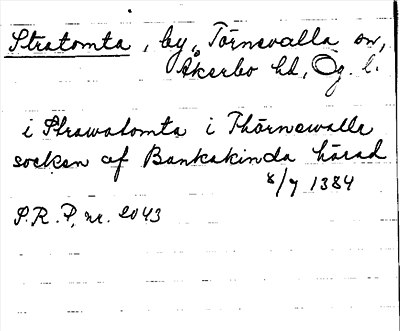 Stratomta, by, Törnevalla sn,
Åkerbo hd, Ög. l.
i Strawatomta i Thörnewalle
socken af Bankakinda härad
8/7 1384
S.R.P, nr. 2043